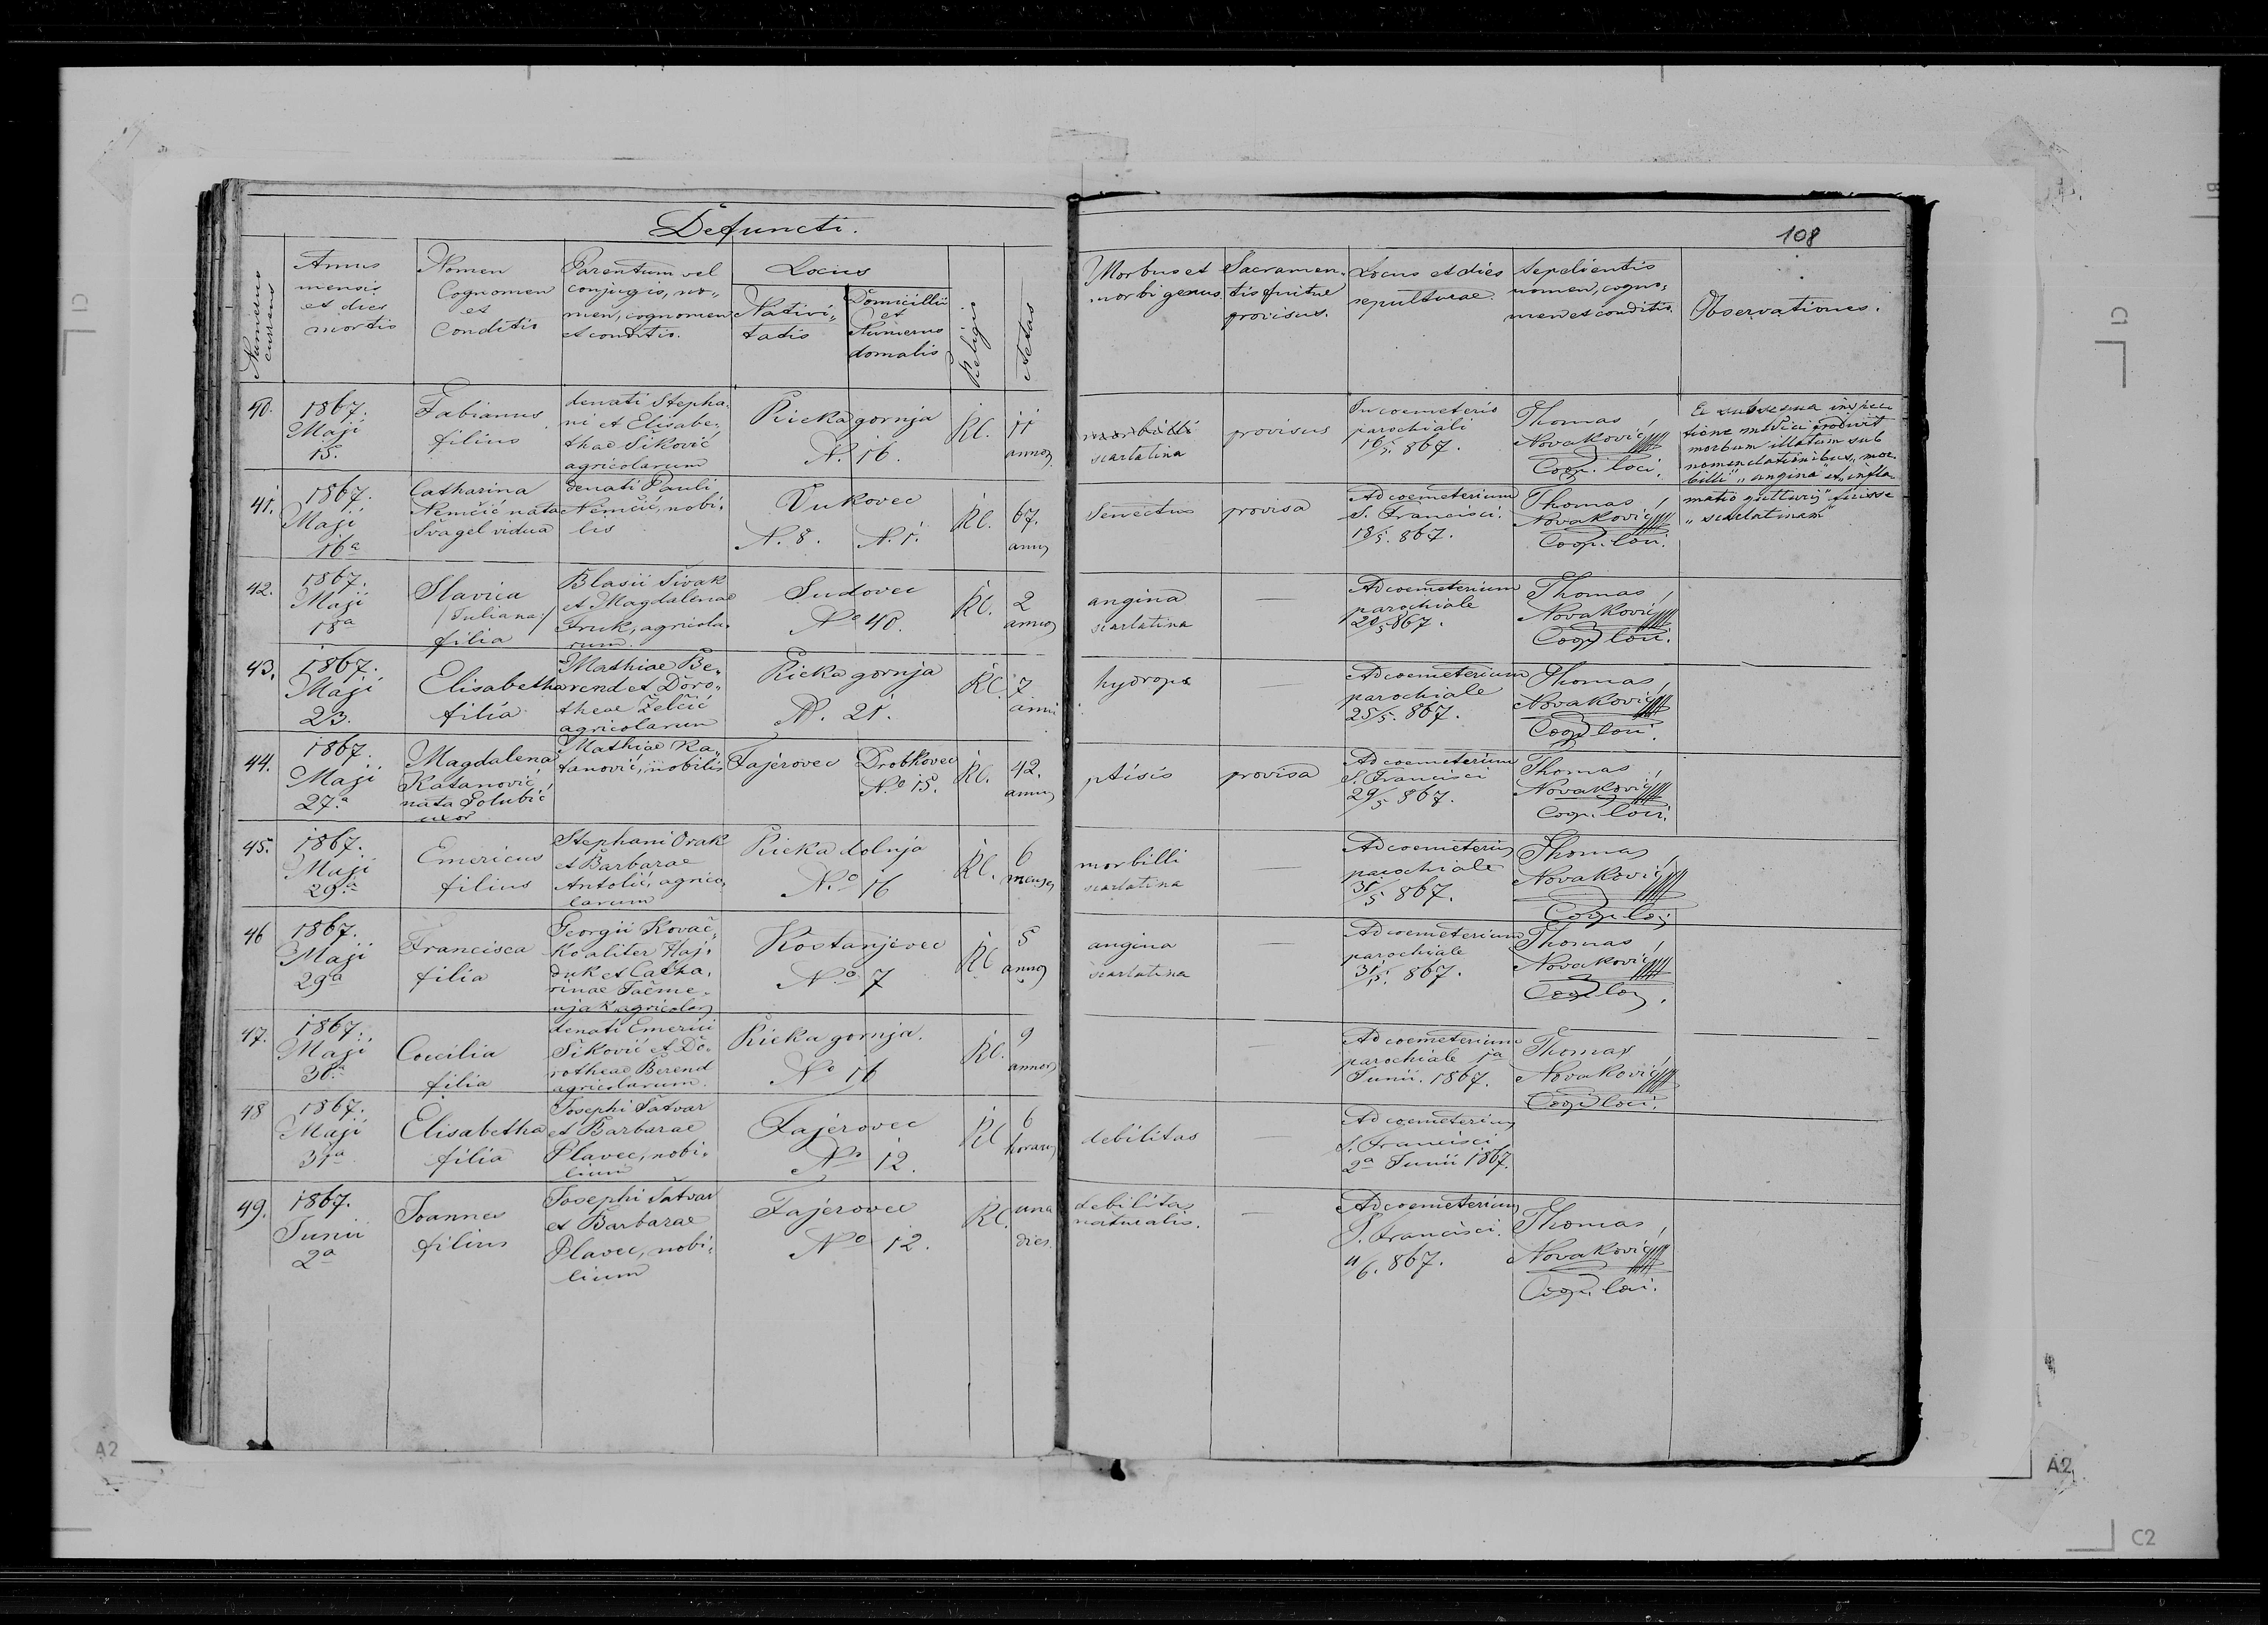 Defuncti.
108
Numerus currens
Annus mensis et dies mortis
Nomen Cognomen et Conditio
Parentum vel conjugis, no„ men, cognomen et conditio.
Locus
Nativi„ tatis
Domicilii et Numerus domalis
Religio
Aetas
Morbus et morbi genus.
Sacramen„ tis fuitne provisus.
Locus et dies sepulturae.
Sepelientis nomen, cogno„ men et conditio.
Observationes.
40.
1867.
Maji
15.
Fabianus
filius
denati Stepha„
ni et Elisabe„
thae Šiković
agricolarum
Rieka gornja
N. 16.
RC.
11
annor
morbilli
scarlatina
provisus
In coemeterio
parochiali
16/5. 867.
Thomas
Novaković
Coop. loci.
Ex
tione medici prodivit
morbum illatum sub
nomenclationibus „mor„
billi" „angina" et „infla„
matio gutturis" fuisse
„scarlatinam"
41.
1867.
Maji
16a
Catharina
Nemčić nata
Švagel vidua
denati Pauli
Nemčić, nobi„
lis
Vukovec
N. 8. N. 1.
RC.
67.
annor
Senectus
provisa
Ad coemeterium
S. Francisci.
18/5. 867.
Thomas
Novaković
Coop. loci.
42.
1867.
Maji
18a
Slavica
/:Juliana:/
filia
Blasii Sivak
et Magdalenae
Fruk, agricola„
rum.
Sudovec
No 40.
RC.
2
annor
angina
scarlatina
—
Ad coemeterium
parochiale
20/5 867.
Thomas
Novaković
Coop. loci.
43.
1867.
Maji
23.
Elisabetha
filia
Mathiae Be„
rend et Doro„
theae Želčić
agricolarum
Rieka gornja
N. 21.
RC.
7
anni
hydrops
—
Ad coemeterium
parochiale
25/5. 867.
Thomas
Novaković
Coop. loci.
44.
1867.
Maji
27.a
Magdalena
Katanović
nata Golubić
uxor
Mathiae Ka„
tanović, nobilis
Fajerovec
Drobkovec
No 15.
RC.
42.
annor
ptisis
provisa
Ad coemeterium
S. Francisci
29/5 867.
Thomas
Novaković
Coop. loci.
45.
1867.
Maji
29.a
Emericus
filius
Stephani Orak
et Barbarae
Antolić, agrico„
larum
Rieka dolnja
No 16
RC.
6
mens
morbilli
scarlatina
—
Ad coemeterium
parochiale
31/5 867.
Thomas
Novaković
Coop. loci
46
1867.
Maji
29a
Francisca
filia
Georgii Kovač„
ko aliter Haj„
duk et Catha„
rinae Jačme„
njak agricolar
Kostanjevec
No 7
RC
5
annor
angina
scarlatina
—
Ad coemeterium
parochiale
31/5. 867.
Thomas
Novaković
Coop. loci.
47.
1867.
Maji
30.a
Coecilia
filia
denati Emerici
Šiković et Do„
rotheae Berend
agricolarum.
Rieka gornja.
No 16
RC.
9
annor
—
Ad coemeterium
parochiale 1a
Junii. 1867.
Thomas
Novaković
Coop. loci.
48
1867.
Maji
31a
Elisabetha
filia
Josephi Šatvar
et Barbarae
Plavec, nobi„
lium
Fajerovec
No 12.
RC
6
horarum
debilitas
—
Ad coemeterium
S. Francisci
2a Junii 1867.
49.
1867.
Junii
2a
Joannes
filius
Josephi Šatvar
et Barbarae
Plavec, nobi„
lium
Fajerovec
No 12.
RC.
una
dies.
debilitas
naturalis.
—
Ad coemeterium
S. Francisci.
4/6. 867.
Thomas
Novaković
Coop. loci.
C1
C1
A2
A2
C2